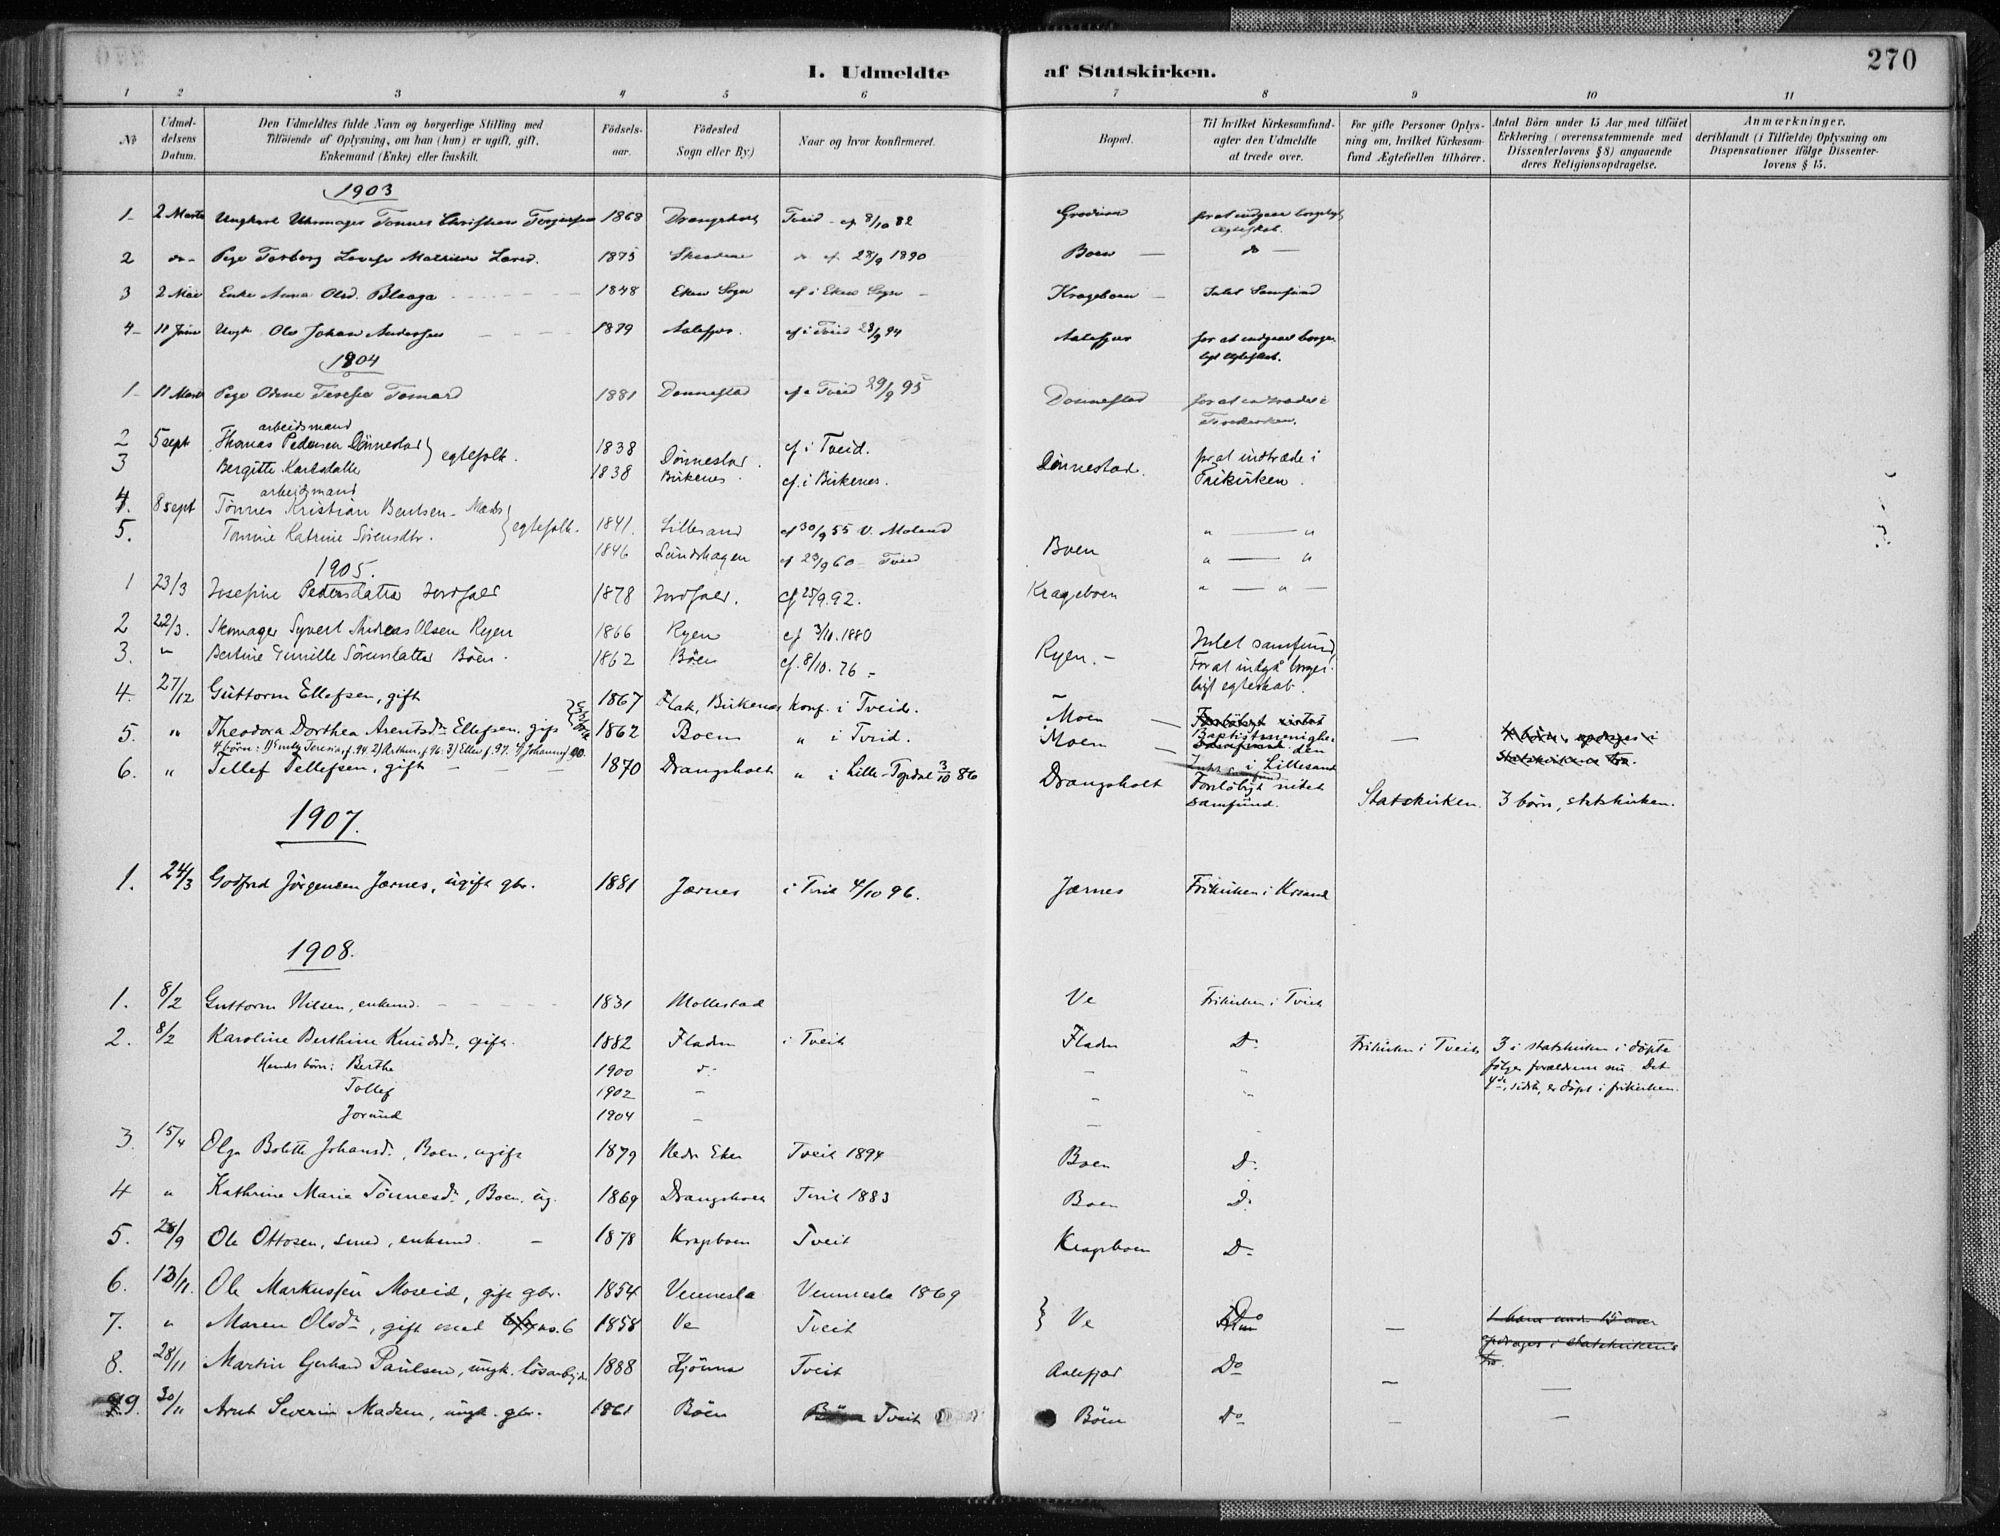 270
I. Udmeldte af Statskirken.
1 2 3 4 5 6 7 8 9 10 11
No
Udmel-
delsens
Datum.
Den Udmeldtes fulde Navn og borgerlige Stilling med
Tilföiende af Oplysning, om han (hun) er ugift, gift,
Enkemand (Enke) eller fraskilt.
Födsels-
aar.
Födested
Sogn eller By.)
Naar og hvor konfirmeret.
Bopæl.
Til hvilket Kirkesamfund-
agter den Udmeldte
at træde over.
For gifte Personer Oplys-
ning om, hvilket Kirkesam-
fund Ægtefællen tilhörer.
Antal Börn under 15 Aar med tilföiet
Erklæring (overensstemmende med
Dissenterlovens § 8) angaaende
deres Religionsopdragelse.
Anmærkninger,
deriblandt (i Tilfælde) Oplysning om
Dispensationer ifölge Dissenter-
lovens § 15.
1903
1- 2 Marts Ungkarl Uhrmager Tønnes Christian 1868 Drangsholt Tveid - cf 8/10 82 for at indgaa borgerligt
Ægteskab.
2 do- Pige Torborg 1875 do cf. 28/9 1890 Boen - do -
3 2 Mai Enke Anna Olsd. Blaaga 1848 Eken Sogn cf i Eken Sogn - Krageboen - Intet Samfund
4- 11 Juni Ungk Ole Johan Andersen 1879 Aalefjær. cf i Tveid 23/9 94 Aalefjær for at indgaae borger-
ligt Ægteskab.
1904
1- 11 Marts Pige 1881 Donnestad cf i Tveid 29/9 95 Donnestad for at indtræde i
Frikirken.
arbeidsmand
2 5 sept Thomas Pedersen Dönnestad } egtefolk. 1838 Dönnestad. cf i Tveid. Dönnestad. for at indtræde i
3 Bergitte Karlsdatter 1838 Birkenes. cf. i Birkenes. Frikirken.
arbeidsmand
4. 8 sept Tönnes Kristian Bentsen } egtefolk. 1841. Lillesand cf 30/9 55 V. Moland " — "
5. Tomine Katrine Sörensdtr. 1846 Sundshagen cf 23/9 60 - Tveid Boen " — "
1905.
1 23/3 Josefine Pedersdatter Jordfald 1878 Jordfald. cf 25/9. 92. Krageboen " — " —
2 22/3. Skomager Syvert Andreas Olsen Ryen 1866 Ryen cf 3/10. 1880 Intet samfund
3. " Bertine Gunille Sörensdatter Böen. 1862 Böen cf. 8/10. 76 - Ryen. - For at indgå borger-
ligt egteskab.
4. 27/12 Guttorm Ellefsen, gift 1867 Flak, Birkenes Konf. i Tveid. Moen —
5. " Theodora Dorthea Arentsdr. Ellefsen, gift 1862 Boen " i Tveid. Moen — Baptistmenighe-
den
i Lillesand —
4 börn: 1) Emily Teresia, f. 94. 2) Arthur, f. 96. 3) Ellen f. 97. 4) Johanne f. 00.
6. " Tellef Tellefsen, gift — — — 1870 Drangsholt " i Lille-Topdal 3/10 86 Drangsholt Foreløbigt intet
samfund. Statskirken 3 börn, statskirken.
1907.
1. 24/3 Godfred Jörgensen Jærnes, ugift gbr. 1881 Jærnes i Tveit 4/10 96. Jærnes Frikirken i Krsand
1908.
1. 8/2 Guttorm Nilsen, enkemd. 1831 Mollestad Ve Frikirken i Tveit
2. 8/2 Karoline Berthine Knudsdr., gift. 1882 Fladen i Tveit Fladen Do Frikirken i Tveit 3 i statskirken i döpte
Hendes börn: Berthe 1900 do - " fölger forældrene nu. Det
Tollef 1902 - - " 4de, sidste, er döpt i frikirken.
Jorund 1904 - - -
3. 15/4 Olga Bolette Johansdr., Boen, ugift 1879 Nedre Eker Tveit 1894 Boen Do
4 " Kathrine Marie Tönnesdr., Boen, ug. 1869 Drangsholt Tveit 1883 Boen Do
5. 28/9 Ole Ottosen, smed, enkemd. - 1878 Krageboen Tveit Krageboen Do
6. 13/11. Ole Markussen Moseid, gift gbr. 1854 Vennesla Vennesla 1869
7. " Maren Olsdr., gift med no. 6 1858 Ve Tveit } Ve Do — 1 barn under 15 aar
opdrages i statskirkens
tro.
8. 28/11 Martin Gerhard Paulsen, ungk. lösarbejder 1888 Hjönna Tveit Aalefjær Do — —
9. 30/11 Arnt Severin Madsen, ungk. gbr. 1861 Böen Tveit Böen Do — —